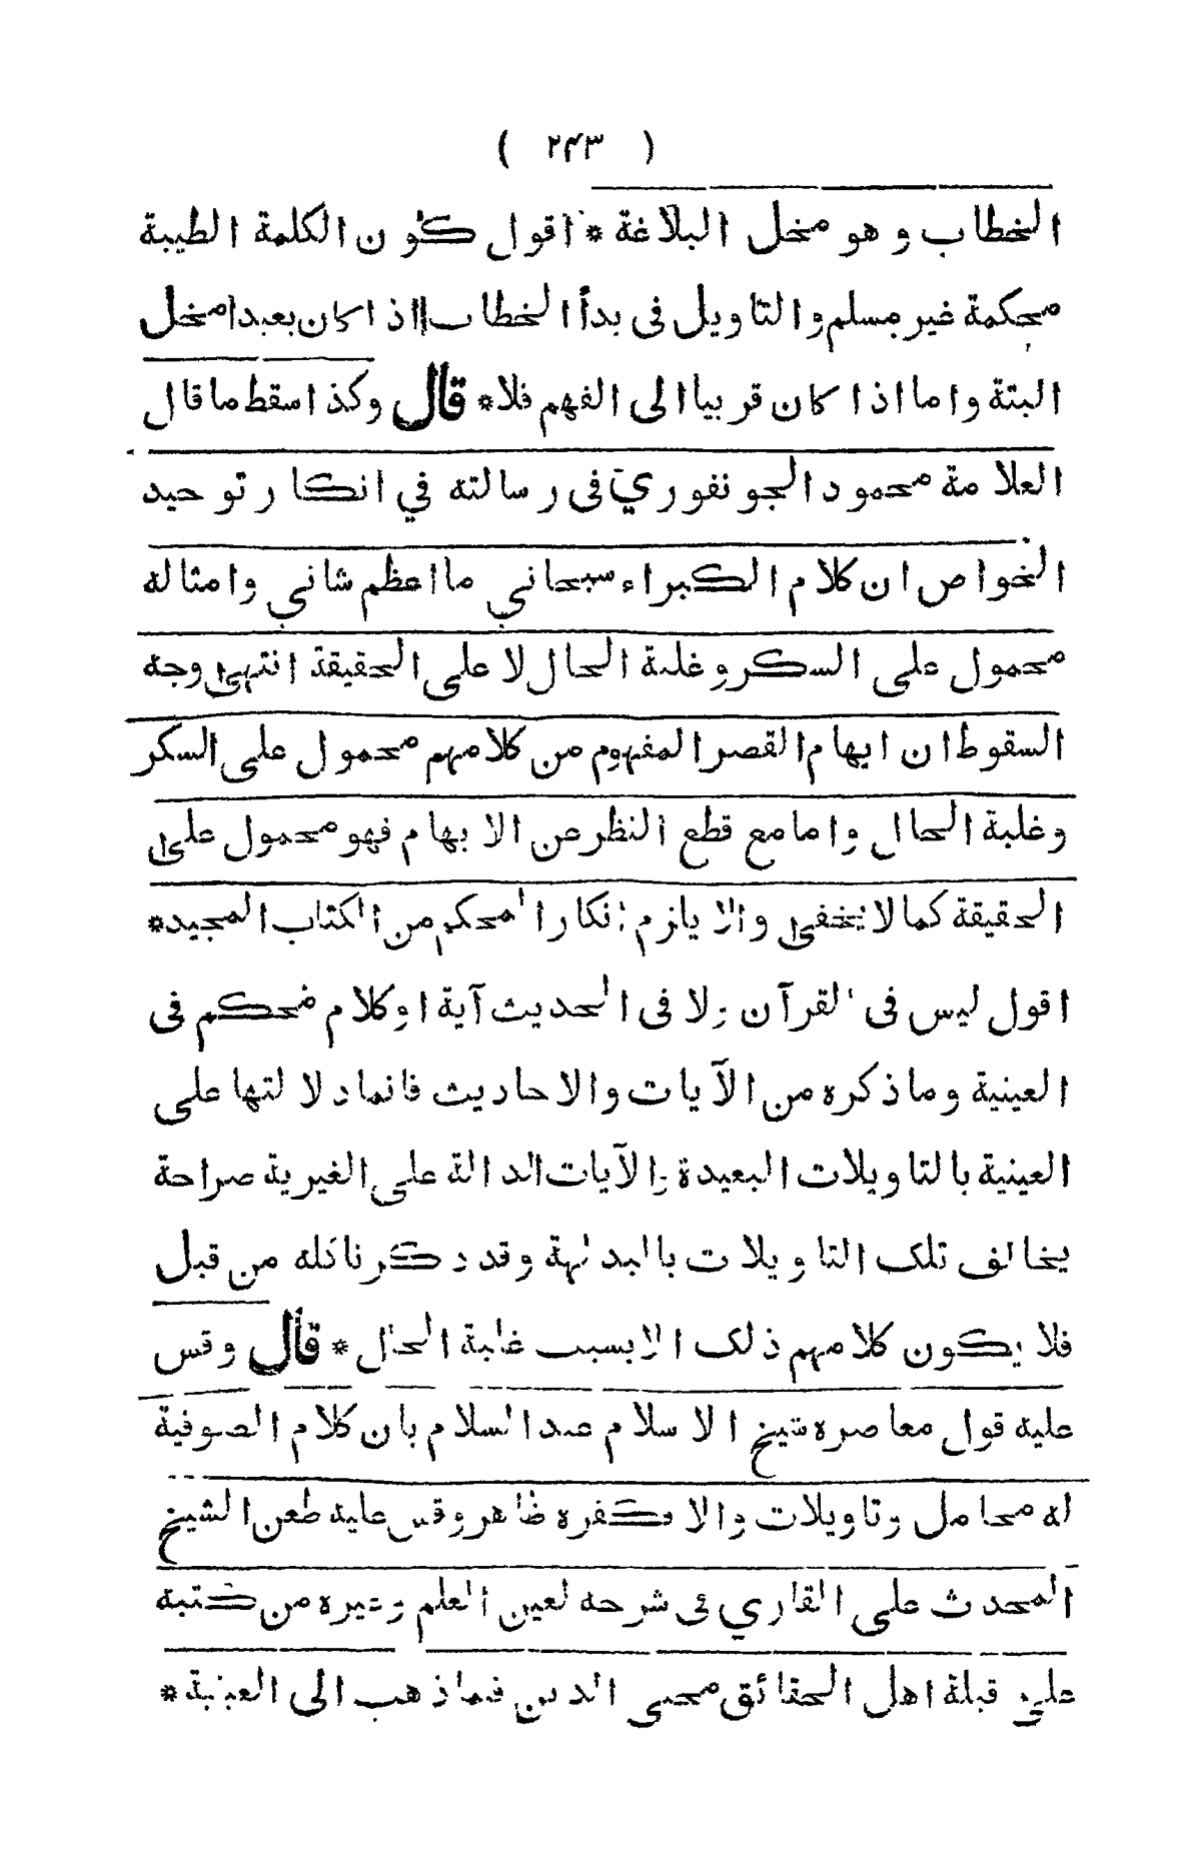 ( ٢٤٣ )
الخطاب و هو مخل البلاغة * اقول كون الكلمة الطيبة
محكمة غير مسلم و التاويل فى بدأ الخطاب اذا كان بعيدا مخل
البتة و اما اذا كان قريبا الى الفهم فلا * قال وكذا سقط ما قال
العلامة محمود الجونفوري فى رسالته في انكار توحيد
الخواص ان كلام الكبراء سبحاني ما اعظم شاني وامثاله
محمول على السكر و غلبة الحال لا على الحقيقة انتهى وجه
السقوط ان ايهام القصر المفهوم من كلامهم محمول على السكر
و غلبة الحال و اما مع قطع النظر عن الايهام فهو محمول على
الحقيقة كما لا يخفى والا يلزم انكار المحكم من الكتاب المجيد *
اقول ليس فى القرآن ولا فى الحديث آية او كلام محكم فى
العينية وما ذكره من الآيات والاحاديث فانما دلالتها على
العينية بالتاويلات البعيدة والآيات الدالة على الغيرية صراحة
يخالف تلك التاويلات بالبداهة و قد ذكرنا ذلك من قبل
فلا يكون كلامهم ذلك الا بسبب غلبة الحال * قال و قس
عليه قول معاصره شيخ الاسلام عبد السلام بان كلام الصوفية
له محامل وتاويلات والا فكفره ظاهر و قس عليه طعن الشيخ
المحدث على القاري فى شرحه لعين العلم وغيره من كتبه
على قبلة اهل الحقائق محيى الدين فيما ذهب الى العينية *